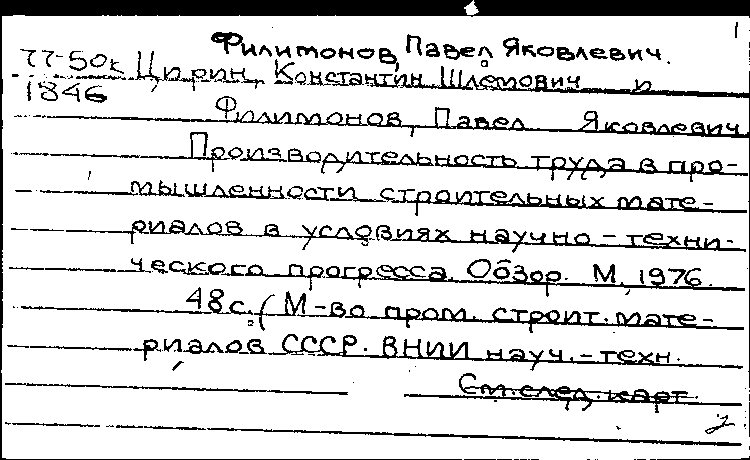 1
Филимонов, Павел Яковлевич.
77-50к Цирин, Константин Шлёмович и
1846
Филимонов, Павел Яковлевич
Производительность труда в про-
мышленности строительных мате-
риалов в условиях научно-техни-
ческого прогресса. Обзор. М., 1976.
48с. (М-во пром. строит. мате-
риалов СССР. ВНИИ науч.-техн.
См. след. карт.